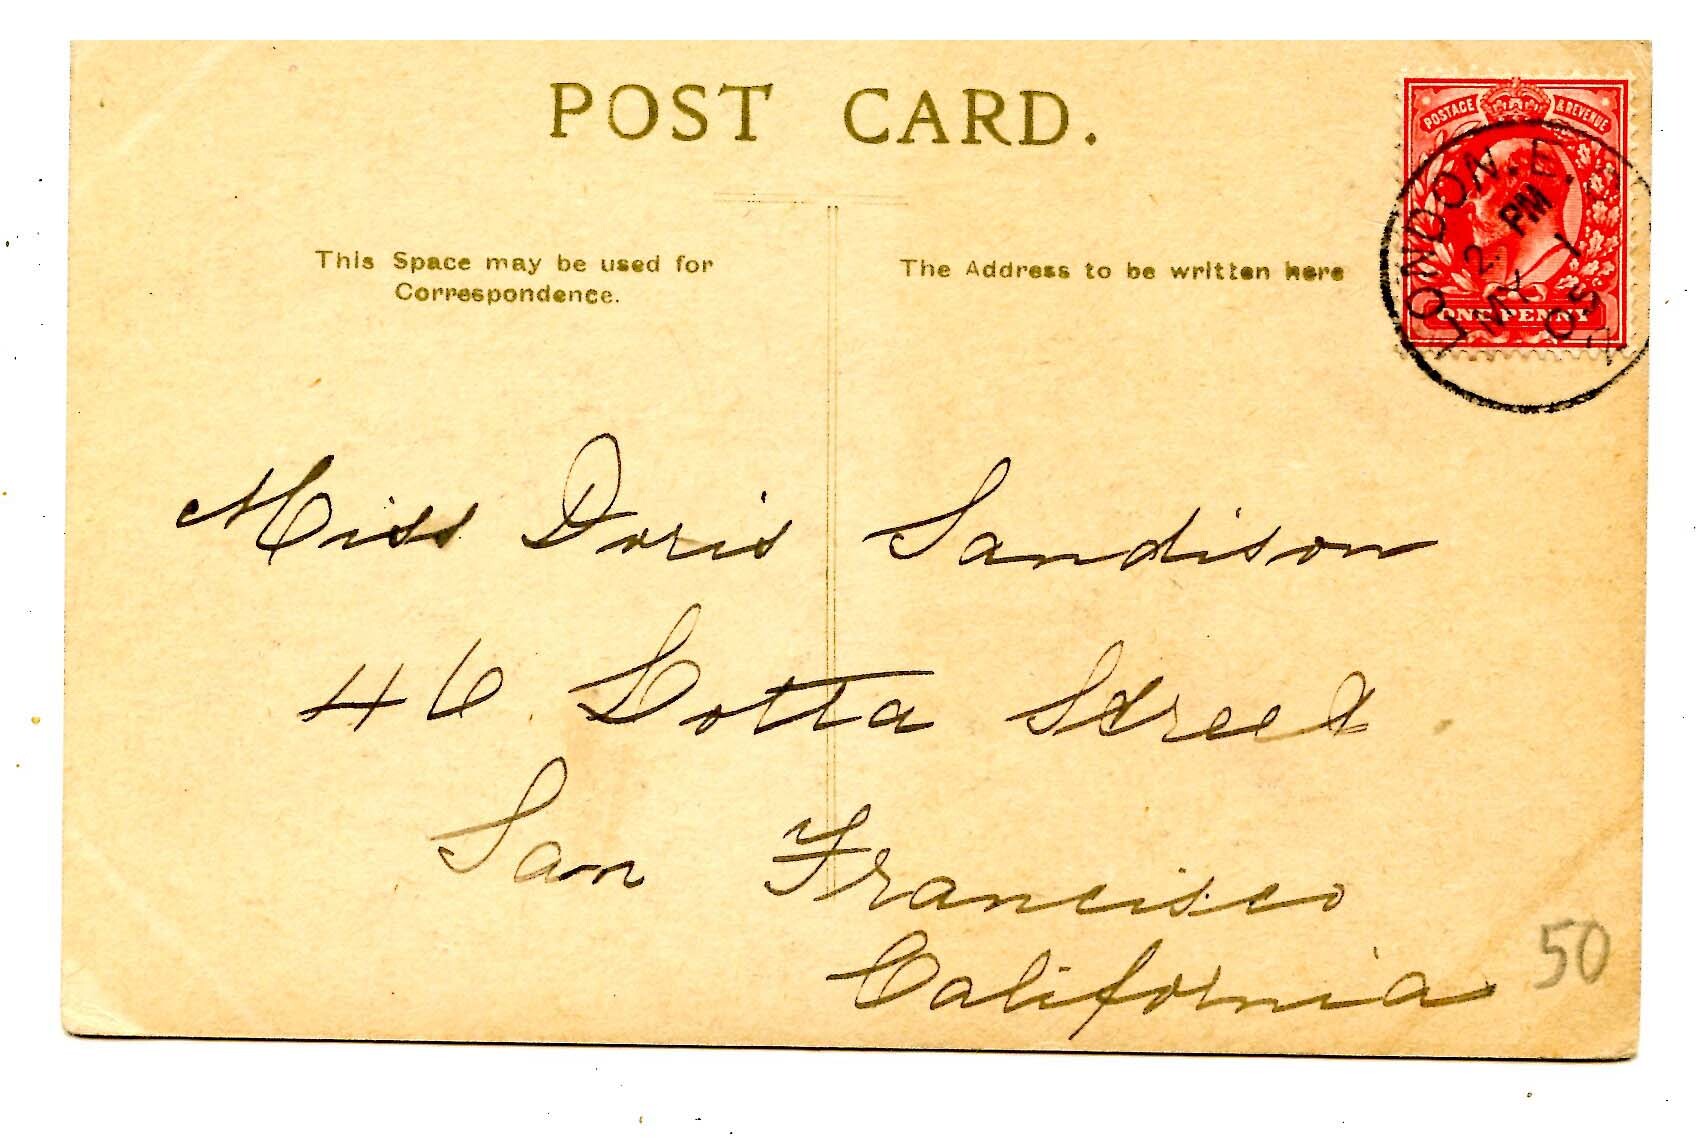 POST CARD.
This Space may be used for
Correspondence.
The Address to be written here
POSTAGE & REVENUE
ONE PENNY
LONDON. E.
2 PM
MY 1
05
Miss Doris Sandison
46 Lotta Street
San Francisco
California
50